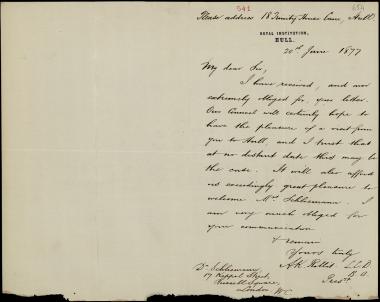 541
654
Please address 18 Trinity House Lane, Hull.
ROYAL INSTITUTION,
HULL.
20th June 1877
My dear Sir,
I have received, and am
extremely obliged for, your letter.
Our Council will certainly hope to
have the pleasure of a visit from
you to Hull, and I trust that
at no distant date this may be
the case. It will also afford
us exceedingly great pleasure to
welcome Mrs Schliemann. I
am very much obliged for
your communication
& remain
Yours truly
A.K. Rollit. LL.D.
B.A.
Presdt.
Dr Schliemann,
17 Keppel Street,
Russell Square,
London, W.C.